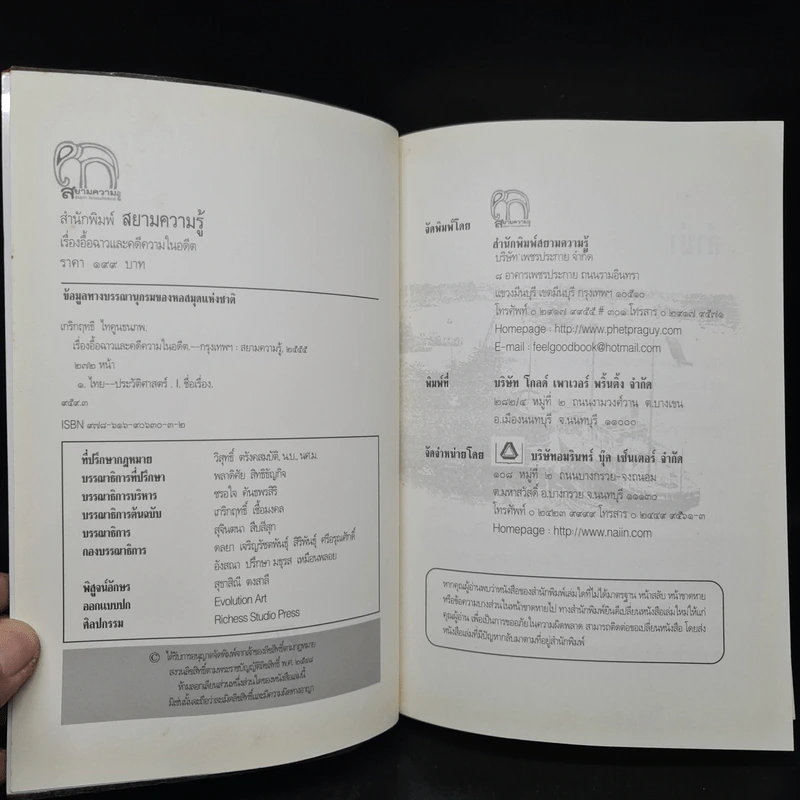 สยามความรู้
สำนักพิมพ์ สยามความรู้
เรื่องอื้อฉาวและคดีความในอดีต
ราคา ๑๙๙ บาท
ข้อมูลทางบรรณานุกรมของหอสมุดแห่งชาติ
เกริกฤทธิ์ ไทคูนธนภพ.
เรื่องอื้อฉาวและคดีความในอดีต.--กรุงเทพฯ : สยามความรู้, ๒๕๕๕
๒๗๒ หน้า
๑. ไทย--ประวัติศาสตร์ . I. ชื่อเรื่อง.
๙๕๙.๓
ISBN ๙๗๘-๖๑๖-๙๐๖๓๐-๓-๒
ที่ปรึกษากฎหมาย วิสุทธิ์ ตรังคสมบัติ, น.บ., นศ.ม.
บรรณาธิการที่ปรึกษา พลาดิศัย สิทธิธัญกิจ
บรรณาธิการบริหาร ซรอใจ คันธพรสิริ
บรรณาธิการต้นฉบับ เกริกฤทธิ์ เชื้อมงคล
บรรณาธิการ สุจินตนา สืบสีสุก
กองบรรณาธิการ ดลยา เจริญรัชตพันธุ์ สิริพันธุ์ ศรีอรุณศักดิ์
อังสณา ปรึกษา มธุรส เหมือนพลอย
พิสูจน์อักษร สุชาสิณี ตงสาลี
ออกแบบปก Evolution Art
ศิลปกรรม Richess Studio Press
© ได้รับการอนุญาตจัดพิมพ์จากเจ้าของลิขสิทธิ์ตามกฎหมาย
สงวนลิขสิทธิ์ตามพระราชบัญญัติลิขสิทธิ์ พ.ศ. ๒๕๓๘
ห้ามลอกเลียนส่วนหนึ่งส่วนใดของหนังสือเล่มนี้
มิเช่นนั้นจะถือว่าละเมิดลิขสิทธิ์และมีความผิดทางอาญา
จัดพิมพ์โดย
สยามความรู้
สำนักพิมพ์สยามความรู้
บริษัท เพชรประกาย จำกัด
๘ อาคารเพชรประกาย ถนนรามอินทรา
แขวงมีนบุรี เขตมีนบุรี กรุงเทพฯ ๑๐๕๑๐
โทรศัพท์ ๐ ๒๙๑๗ ๙๙๕๕ # ๓๐๑ โทรสาร ๐ ๒๙๑๗ ๙๕๗๑
Homepage : http://www.phetpraguy.com
E-mail : feelgoodbook@hotmail.com
พิมพ์ที่ บริษัท โกลด์ เพาเวอร์ พริ้นติ้ง จำกัด
๒๘๒/๔ หมู่ที่ ๒ ถนนงามวงศ์วาน ต.บางเขน
อ.เมืองนนทบุรี จ.นนทบุรี ๑๑๐๐๐
จัดจำหน่ายโดย บริษัทอมรินทร์ บุ๊ค เซ็นเตอร์ จำกัด
๑๐๘ หมู่ที่ ๒ ถนนบางกรวย-จงถนอม
ต.มหาสวัสดิ์ อ.บางกรวย จ.นนทบุรี ๑๑๑๓๐
โทรศัพท์ ๐ ๒๔๒๓ ๙๙๙๙ โทรสาร ๐ ๒๔๔๙ ๙๕๖๑-๓
Homepage : http://www.naiin.com
หากคุณผู้อ่านพบว่าหนังสือของสำนักพิมพ์เล่มใดที่ไม่ได้มาตรฐาน หน้าสลับ หน้าขาดหาย
หรือข้อความบางส่วนในหน้าขาดหายไป ทางสำนักพิมพ์ยินดีเปลี่ยนหนังสือเล่มใหม่ให้แก่
คุณผู้อ่าน เพื่อเป็นการขออภัยในความผิดพลาด สามารถติดต่อขอเปลี่ยนหนังสือ โดยส่ง
หนังสือเล่มที่มีปัญหากลับมาตามที่อยู่สำนักพิมพ์